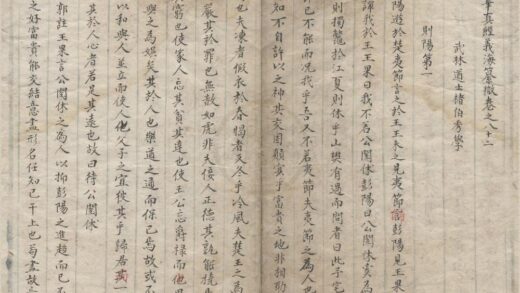 華真經義海纂微卷之八十二
武林道士褚伯秀學
則陽第一
陽遊於楚夷節言之於王王未之見夷節歸彭陽見王果
譚我於王王果曰我不若公閱休彭陽曰公閱休奚為
則擉鼈於江夏則休乎山樊有過而問者曰此予宅
已不能而況我乎吾又不若夷節夫夷節之為人也
知不自許以之神其交固顛冥乎富貴之地非相助
也夫凍者假衣於春暍者反冬乎冷風夫楚王之為
嚴其於罪也無赦如虎非夫佞人正德其孰能撓
窮也使家人忘其貧其達也使王公忘爵祿而化
與之為娛矣其於人也樂道之通而保己焉故或不
以和與人並立而使人化父子之宜彼其乎歸居而一
其於人心者若是其遠也故曰待公閱休
郭註王果言公閱休之為人以抑彭陽之進趨而已不
之好富貴能交結意盡形名任知已干上也苟盡故